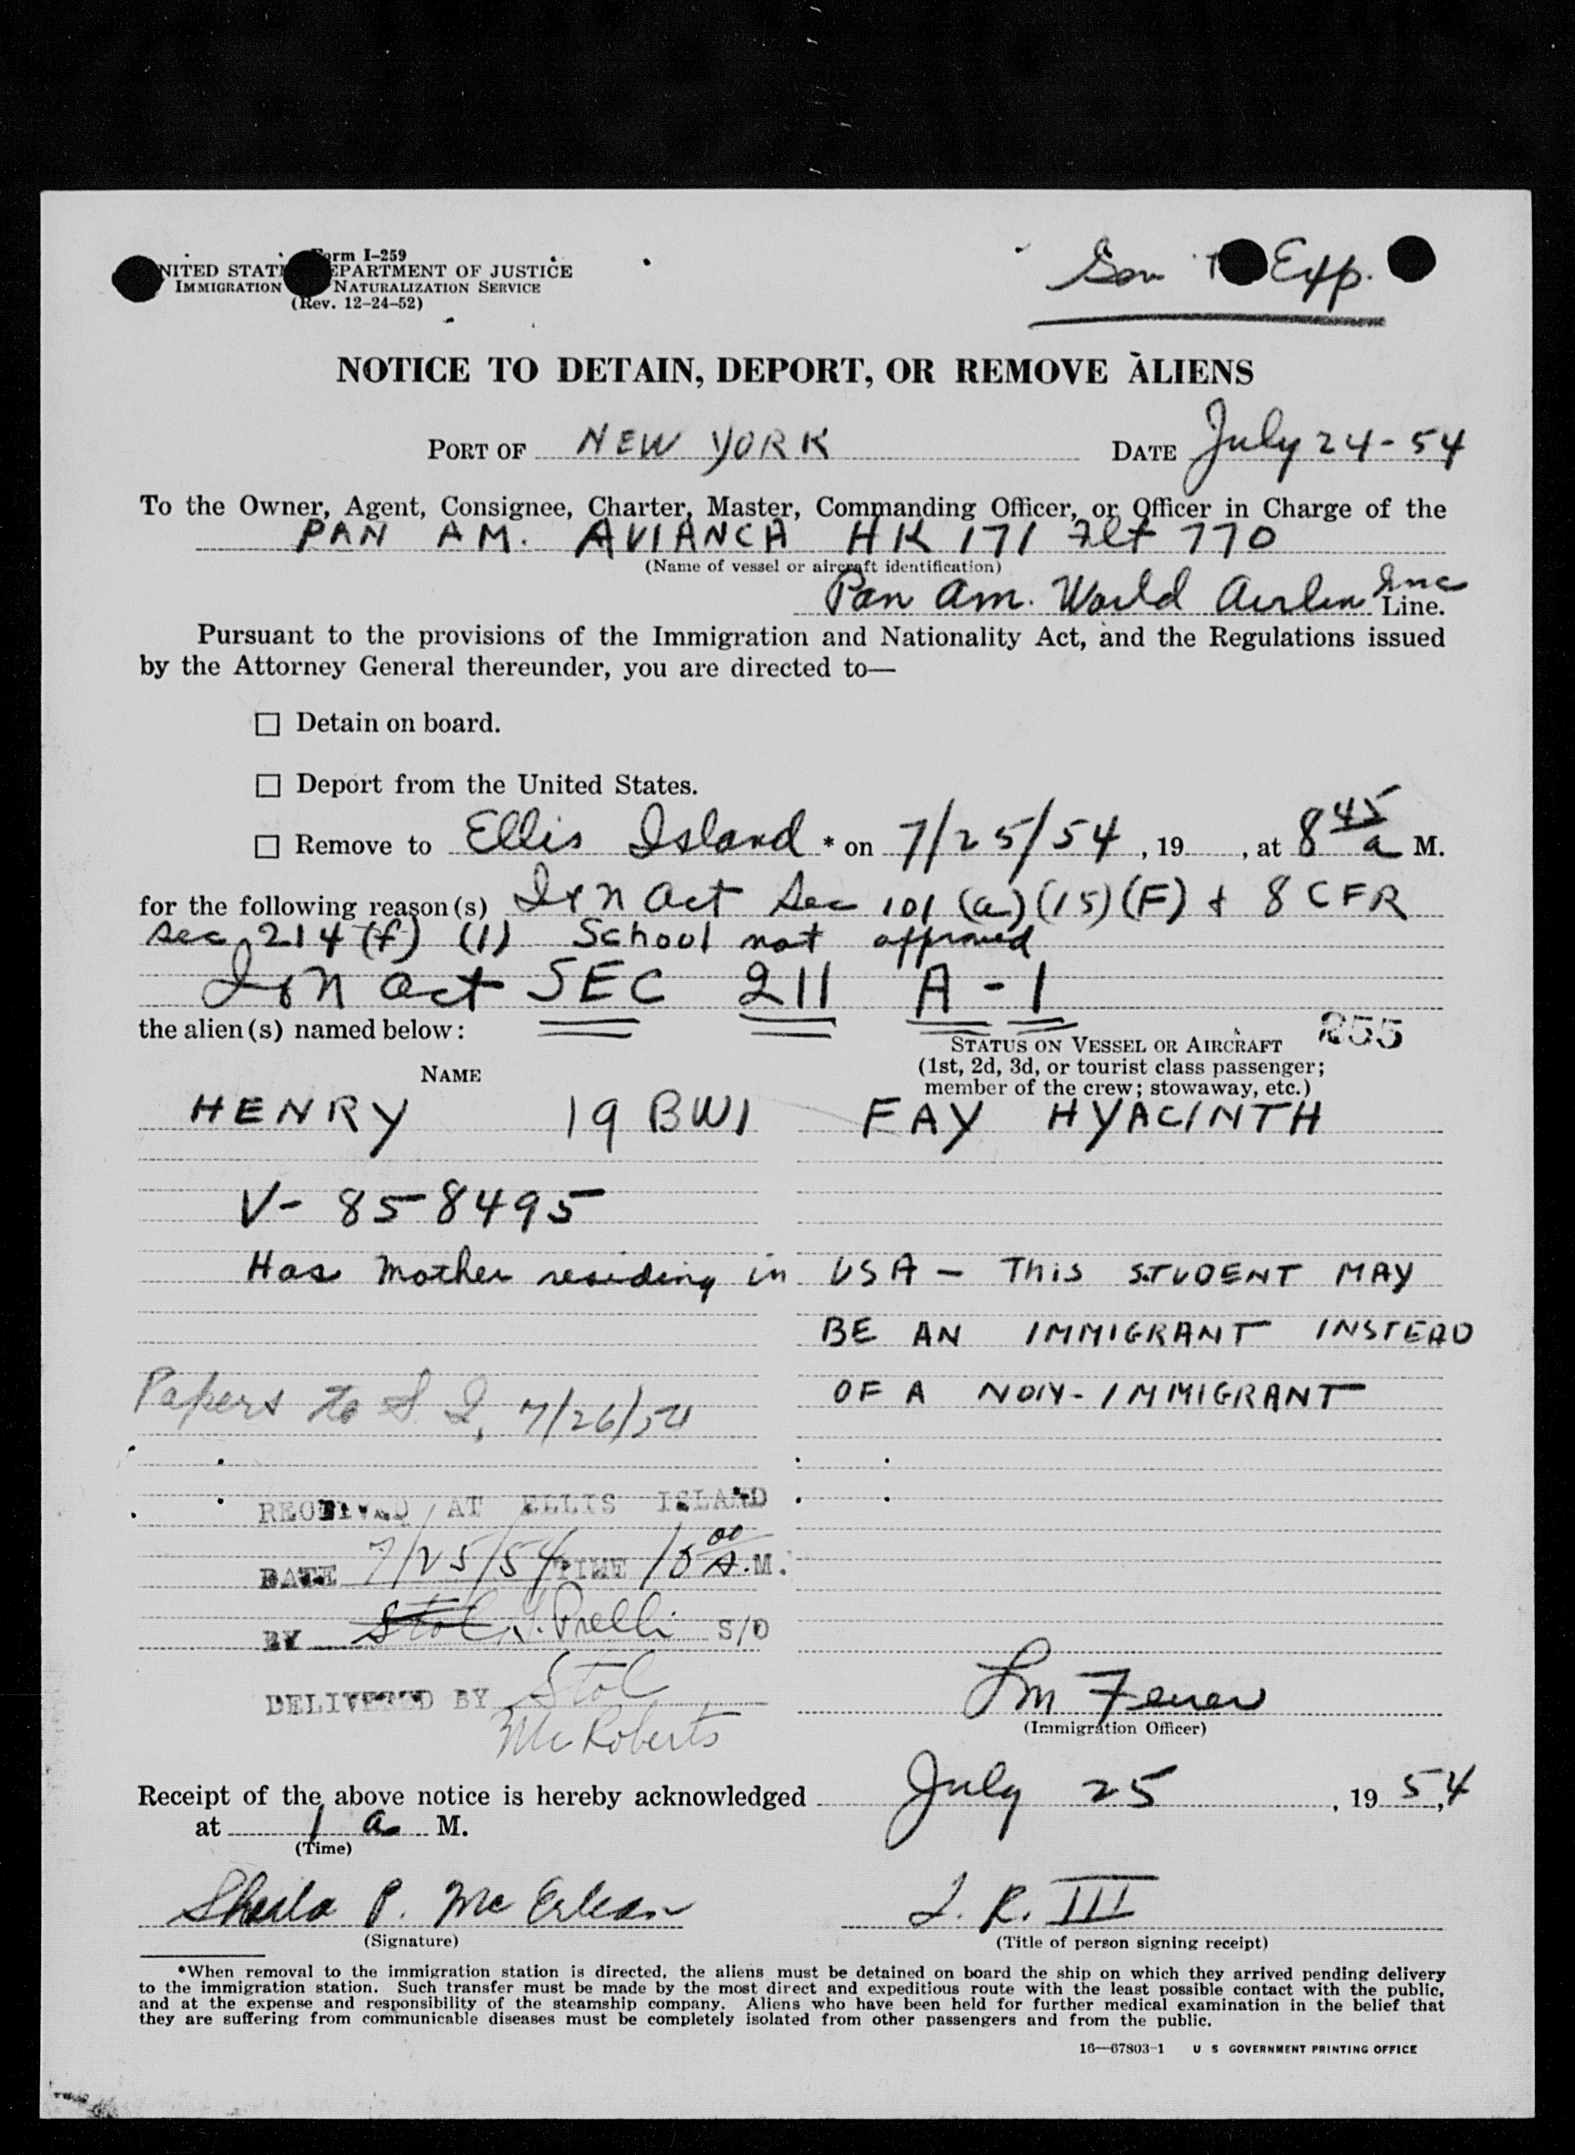 Form I-259
UNITED STATES DEPARTMENT OF JUSTICE
IMMIGRATION NATURALIZATION SERVICE
(Rev. 12-24-52)
Exp.
NOTICE TO DETAIN, DEPORT, OR REMOVE ALIENS
PORT OF NEW YORK DATE July 24-54
To the Owner, Agent, Consignee, Charter, Master, Commanding Officer, or Officer in Charge of the
PAN AM. AVIANCA HK 171 Flt 770
(Name of vessel or aircraft identification)
Pan Am. World Inc Line.
Pursuant to the provisions of the Immigration and Nationality Act, and the Regulations issued
by the Attorney General thereunder, you are directed to—
☐ Detain on board.
☐ Deport from the United States.
☐ Remove to Ellis Island * on 7/25/54, 19 , at 8 45 a M.
for the following reason(s) I & N Act Sec 101 (a) (15) (F) & 8 CFR
Sec 214 (f) (1) School not approved
I & N Act SEC 211 A-1
the alien(s) named below:
255
NAME
STATUS ON VESSEL OR AIRCRAFT
(1st, 2d, 3d, or tourist class passenger;
member of the crew; stowaway, etc.)
HENRY 19 BWI FAY HYACINTH
V- 858495
Has Mother residing in USA - THIS STUDENT MAY
BE AN IMMIGRANT INSTEAD
OF A NON-IMMIGRANT
Papers to S. I. 7/26/54
RECEIVED AT ELLIS ISLAND
DATE 7/25/54 TIME 10 00 A.M.
BY S/O
DELIVERED BY
McRoberts
(Immigration Officer)
Receipt of the above notice is hereby acknowledged July 25, 1954
at 1 a M.
(Time)
Sheila P. McErlean
J. R. III
(Signature)
(Title of person signing receipt)
*When removal to the immigration station is directed, the aliens must be detained on board the ship on which they arrived pending delivery
to the immigration station. Such transfer must be made by the most direct and expeditious route with the least possible contact with the public,
and at the expense and responsibility of the steamship company. Aliens who have been held for further medical examination in the belief that
they are suffering from communicable diseases must be completely isolated from other passengers and from the public.
16—67803-1 U S GOVERNMENT PRINTING OFFICE